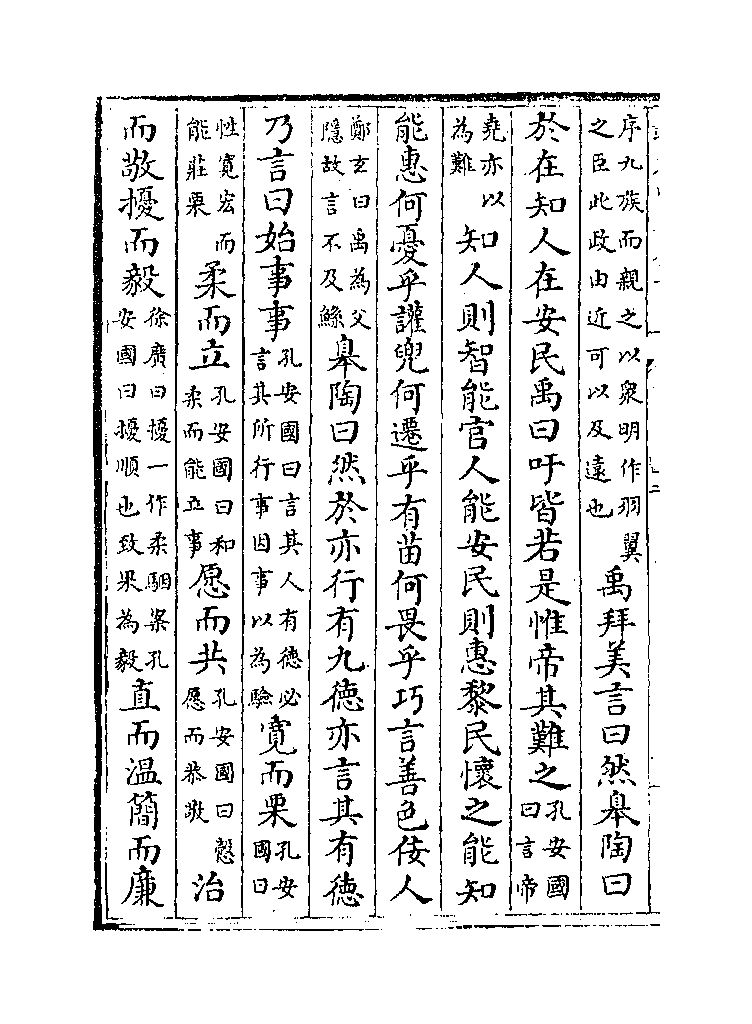 序九族而親之以衆明作羽翼之臣此政由近可以及遠也禹拜美言曰然皋陶曰
於在知人在安民禹曰吁皆若是惟帝其難之孔安國曰言帝
堯亦以為難知人則智能官人能安民則惠黎民懷之能知
能惠何憂乎讙兜何遷乎有苗何畏乎巧言善色佞人
鄭玄曰禹為父隱故言不及鯀皋陶曰然於亦行有九德亦言其有德
乃言曰始事事孔安國曰言其人有德必言其所行事因事以為驗寛而栗孔安國曰
性寛宏而能莊栗柔而立孔安國曰和柔而能立事愿而共孔安國曰慤愿而恭敬治
而敬擾而毅徐廣曰擾一作柔駰案孔安國曰擾順也致果為毅直而溫簡而廉